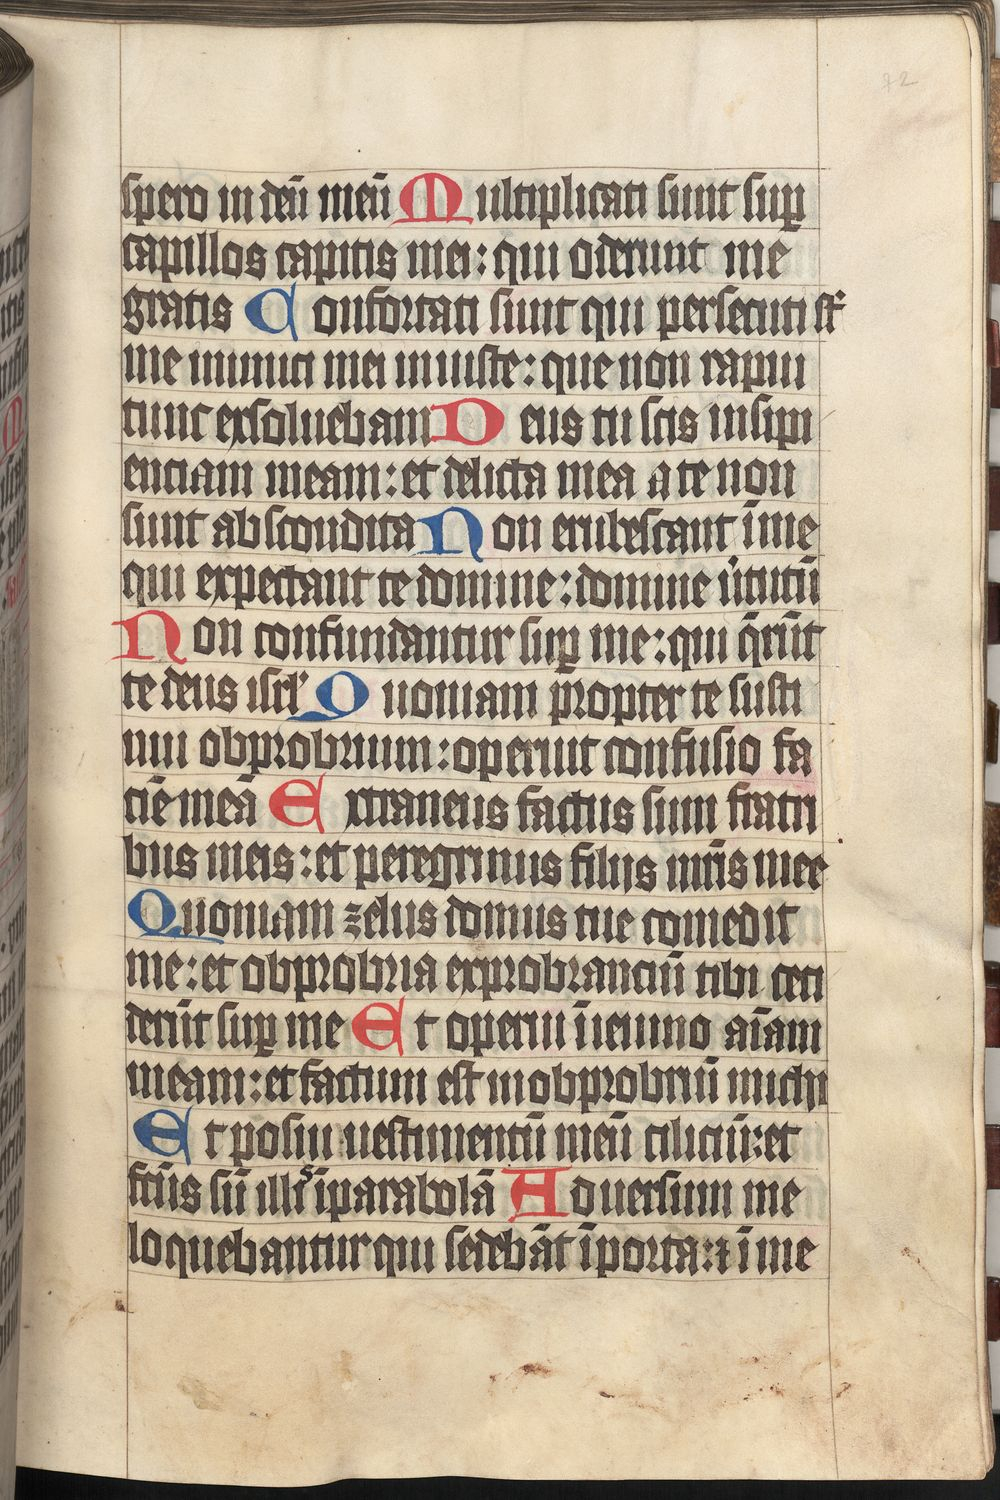 72
spero in deū meū Multiplicati sunt suꝑ
capillos capitis mei: qui oderunt me
gratis Confortati sunt qui persecuti st̄
me inimici mei iniuste: que non rapui
tunc exsoluebam Deus tu scis insipi
entiam meam: et delicta mea a te non
sunt abscondita Non erubescant ī me
qui expectant te domine: domine ūtutū
Non confundantur suꝑ me: qui q̄rūt
te deus isrl' Quoniam propter te susti
nui obprobrium: operuit confusio fa
ciē meā Extraneus factus sum fratri
bus meis: et peregrinus filijs mr̄is mee
Quoniam zelus domus tue comedit
me: et obprobria exprobrantiū tibi ceci
derūt suꝑ me Et operui ī ieiuno aīam
meam: et factum est in obprobriū michi
Et posui uestimentū meū ciliciū: et
fc̄us sū illis ī parabolā Aduersum me
loquebantur qui sedebāt ī porta: ⁊ ī me